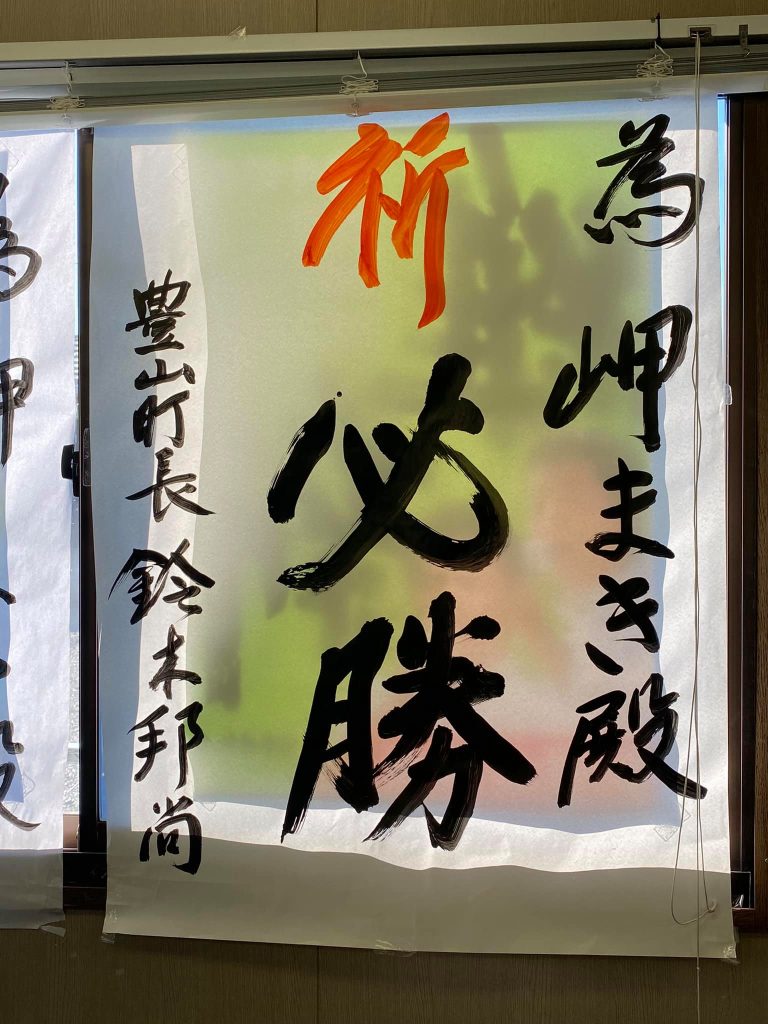 為 岬まき殿
祈 必勝
豊山町長 鈴木邦尚
為 岬
殿